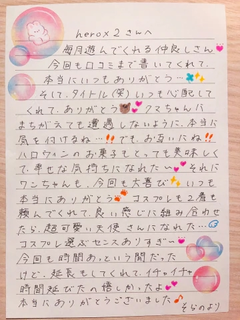 herox2さんへ
毎月遊んでくれる仲良しさん
今回も口コミまで書いてくれて、
本当にいつもありがとう…
そして、タイトル(笑)いつも心配して
くれて、ありがとう クマちゃんに
まちがえても遭遇しないように、本当に
気を付けるね…!! でも、お互いにね!!
ハロウィンのお菓子もとっても美味しく
て、幸せな気持ちになれたい それに
ワンちゃんも、今回も大喜び いつも
本当にありがとう コスプレも2着も
頼んでくれて、良い感じに組み合わせ
たら、超可愛い天使さんになれた…
コスプレ選ぶセンスありすぎー
今回も時間あっという間だった
けど、延長もしてくれて、イチャイチャ
時間延びたの嬉しかったよ
本当にありがとうございました♪
より